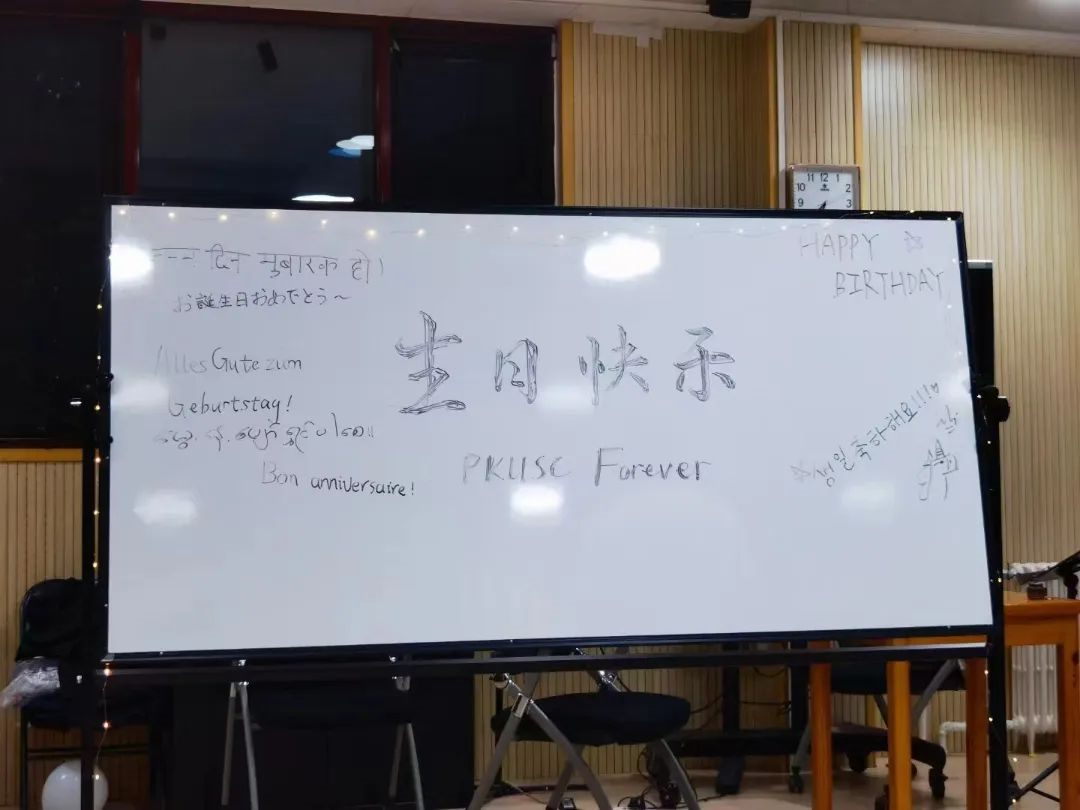 दिन मुबारक हो।
お誕生日おめでとう～
Alles Gute zum
Geburtstag!
မွေးနေ့ ပျော်ရွှင်ပါစေ။
Bon anniversaire!
生日快乐
PKUSC Forever
HAPPY
BIRTHDAY
생일축하해요!!!♡
11 12 1
10 2
9 3